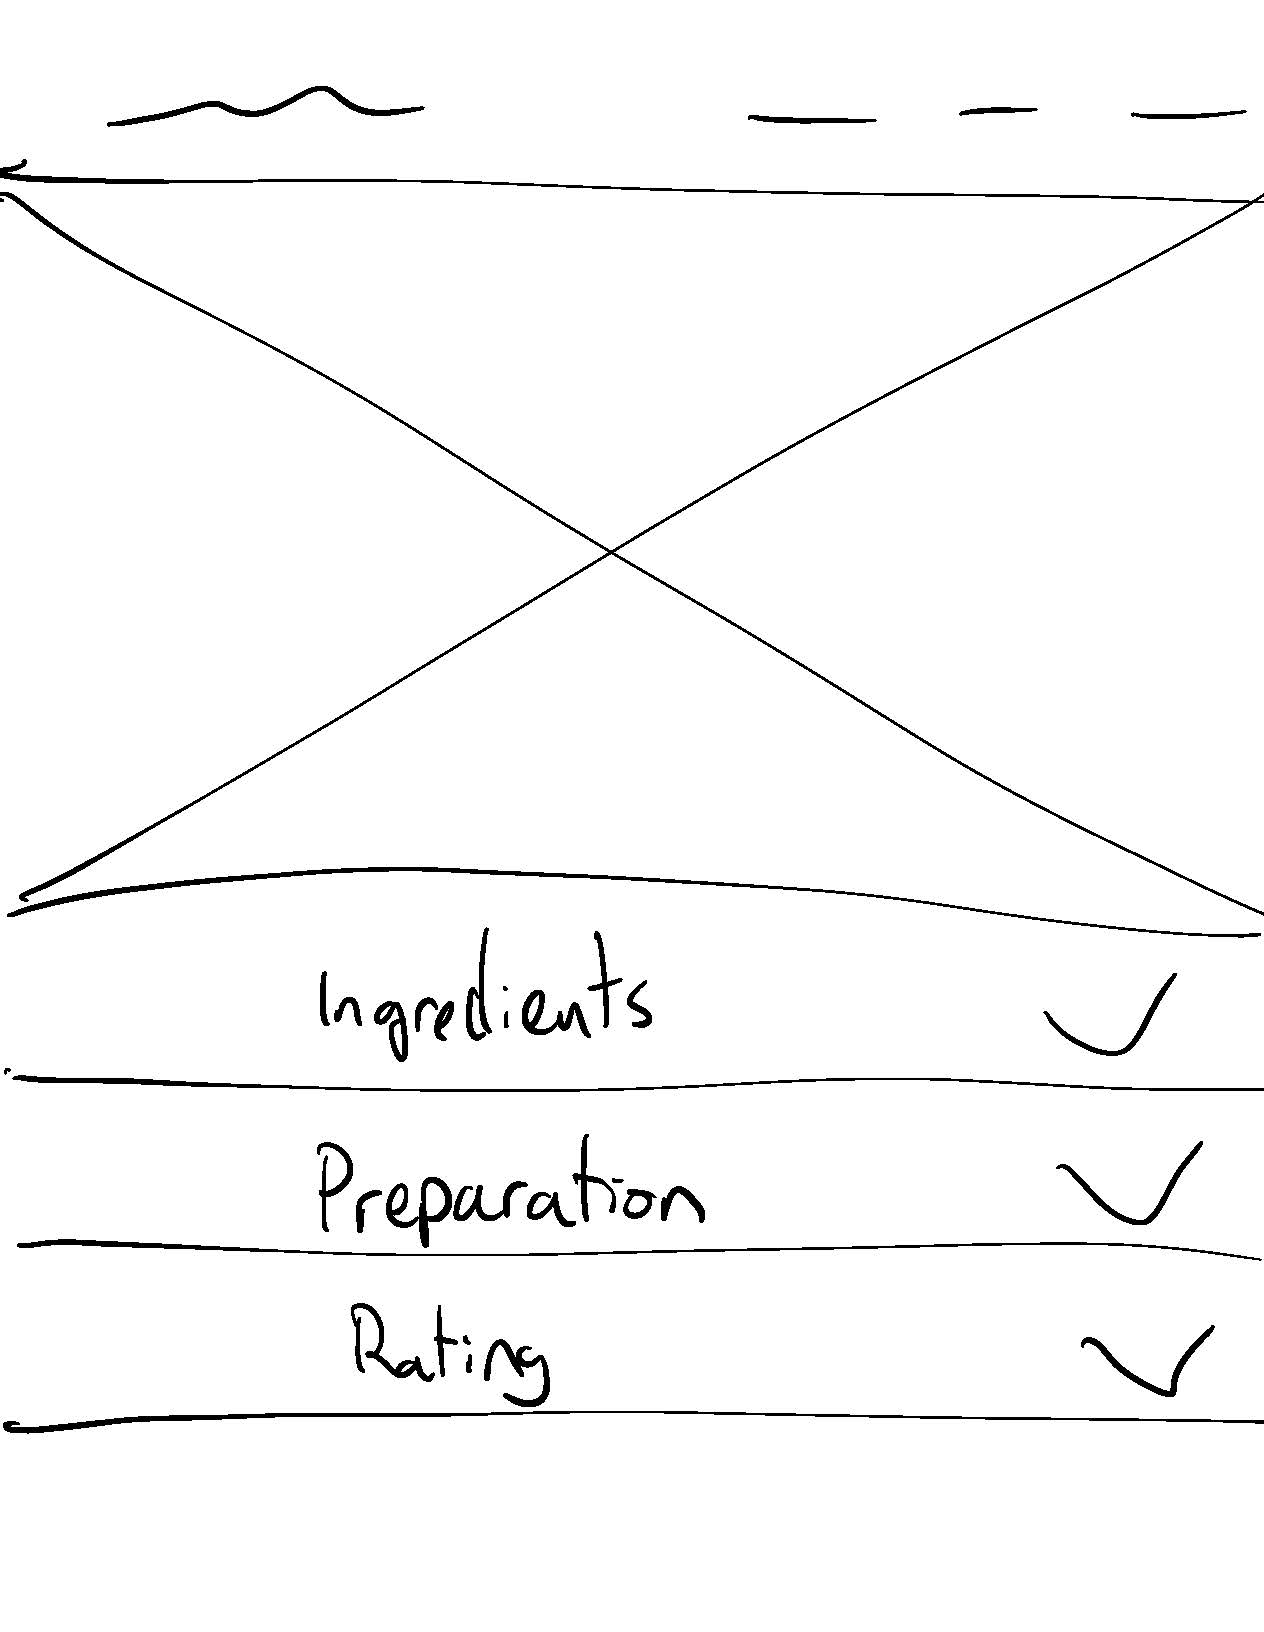 Ingredients
Preparation
Rating